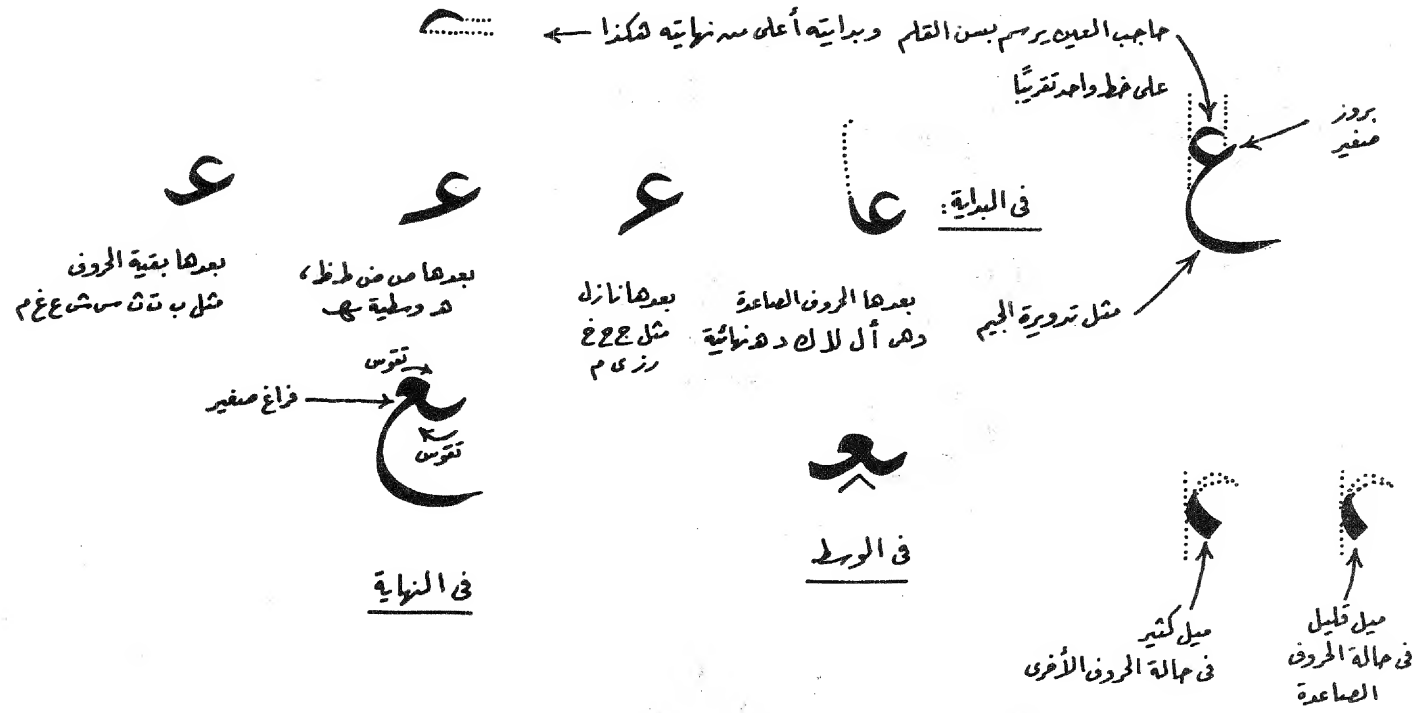 حاجب العين يرسم بسن القلم وبدايته أعلى من نهايته هكذا
على خط واحد تقريبًا
بروز
صغير
ع
مثل تدويرة الجيم
فى البداية:
عا
بعدها الحروف الصاعدة
وهى أ ل لا ك د ه نهائية
عـ
بعدها نازل
مثل ج ح خ
ر ز ى م
عـ
بعدها ص ض ط ظ،
هـ وسطية ـهـ
عـ
بعدها بقية الحروف
مثل ب ت ث س ش ع غ م
تقوس
فراغ صغير
ـع
تقوس
فى النهاية
ـعـ
فى الوسط
ميل كثير
فى حالة الحروف الأخرى
ميل قليل
فى حالة الحروف
الصاعدة